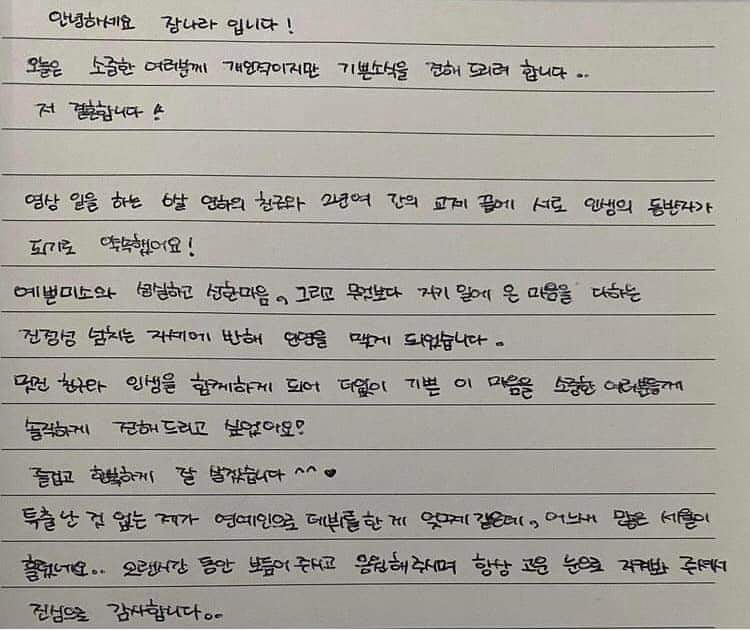 안녕하세요 장나라 입니다!
오늘은 소중한 여러분께 개인적이지만 기쁜소식을 전해 드리려 합니다..
저 결혼합니다!
영상 일을 하는 6살 연하의 친구와 2년여 간의 교제 끝에 서로 인생의 동반자가
되기로 약속했어요!
예쁜미소와 성실하고 선한마음, 그리고 무엇보다 자기 일에 온 마음을 다하는
진정성 넘치는 자세에 반해 인연을 맺게 되었습니다.
멋진 친구와 인생을 함께하게 되어 더없이 기쁜 이 마음을 소중한 여러분들께
솔직하게 전해드리고 싶었어요!
즐겁고 행복하게 잘 살겠습니다 ^^ ♥
특출난 것 없는 제가 연예인으로 데뷔를 한 게 엊그제 같은데, 어느새 많은 세월이
흘렀네요.. 오랜시간 동안 보듬어 주시고 응원해 주시며 항상 고운 눈으로 지켜봐 주셔서
진심으로 감사합니다..